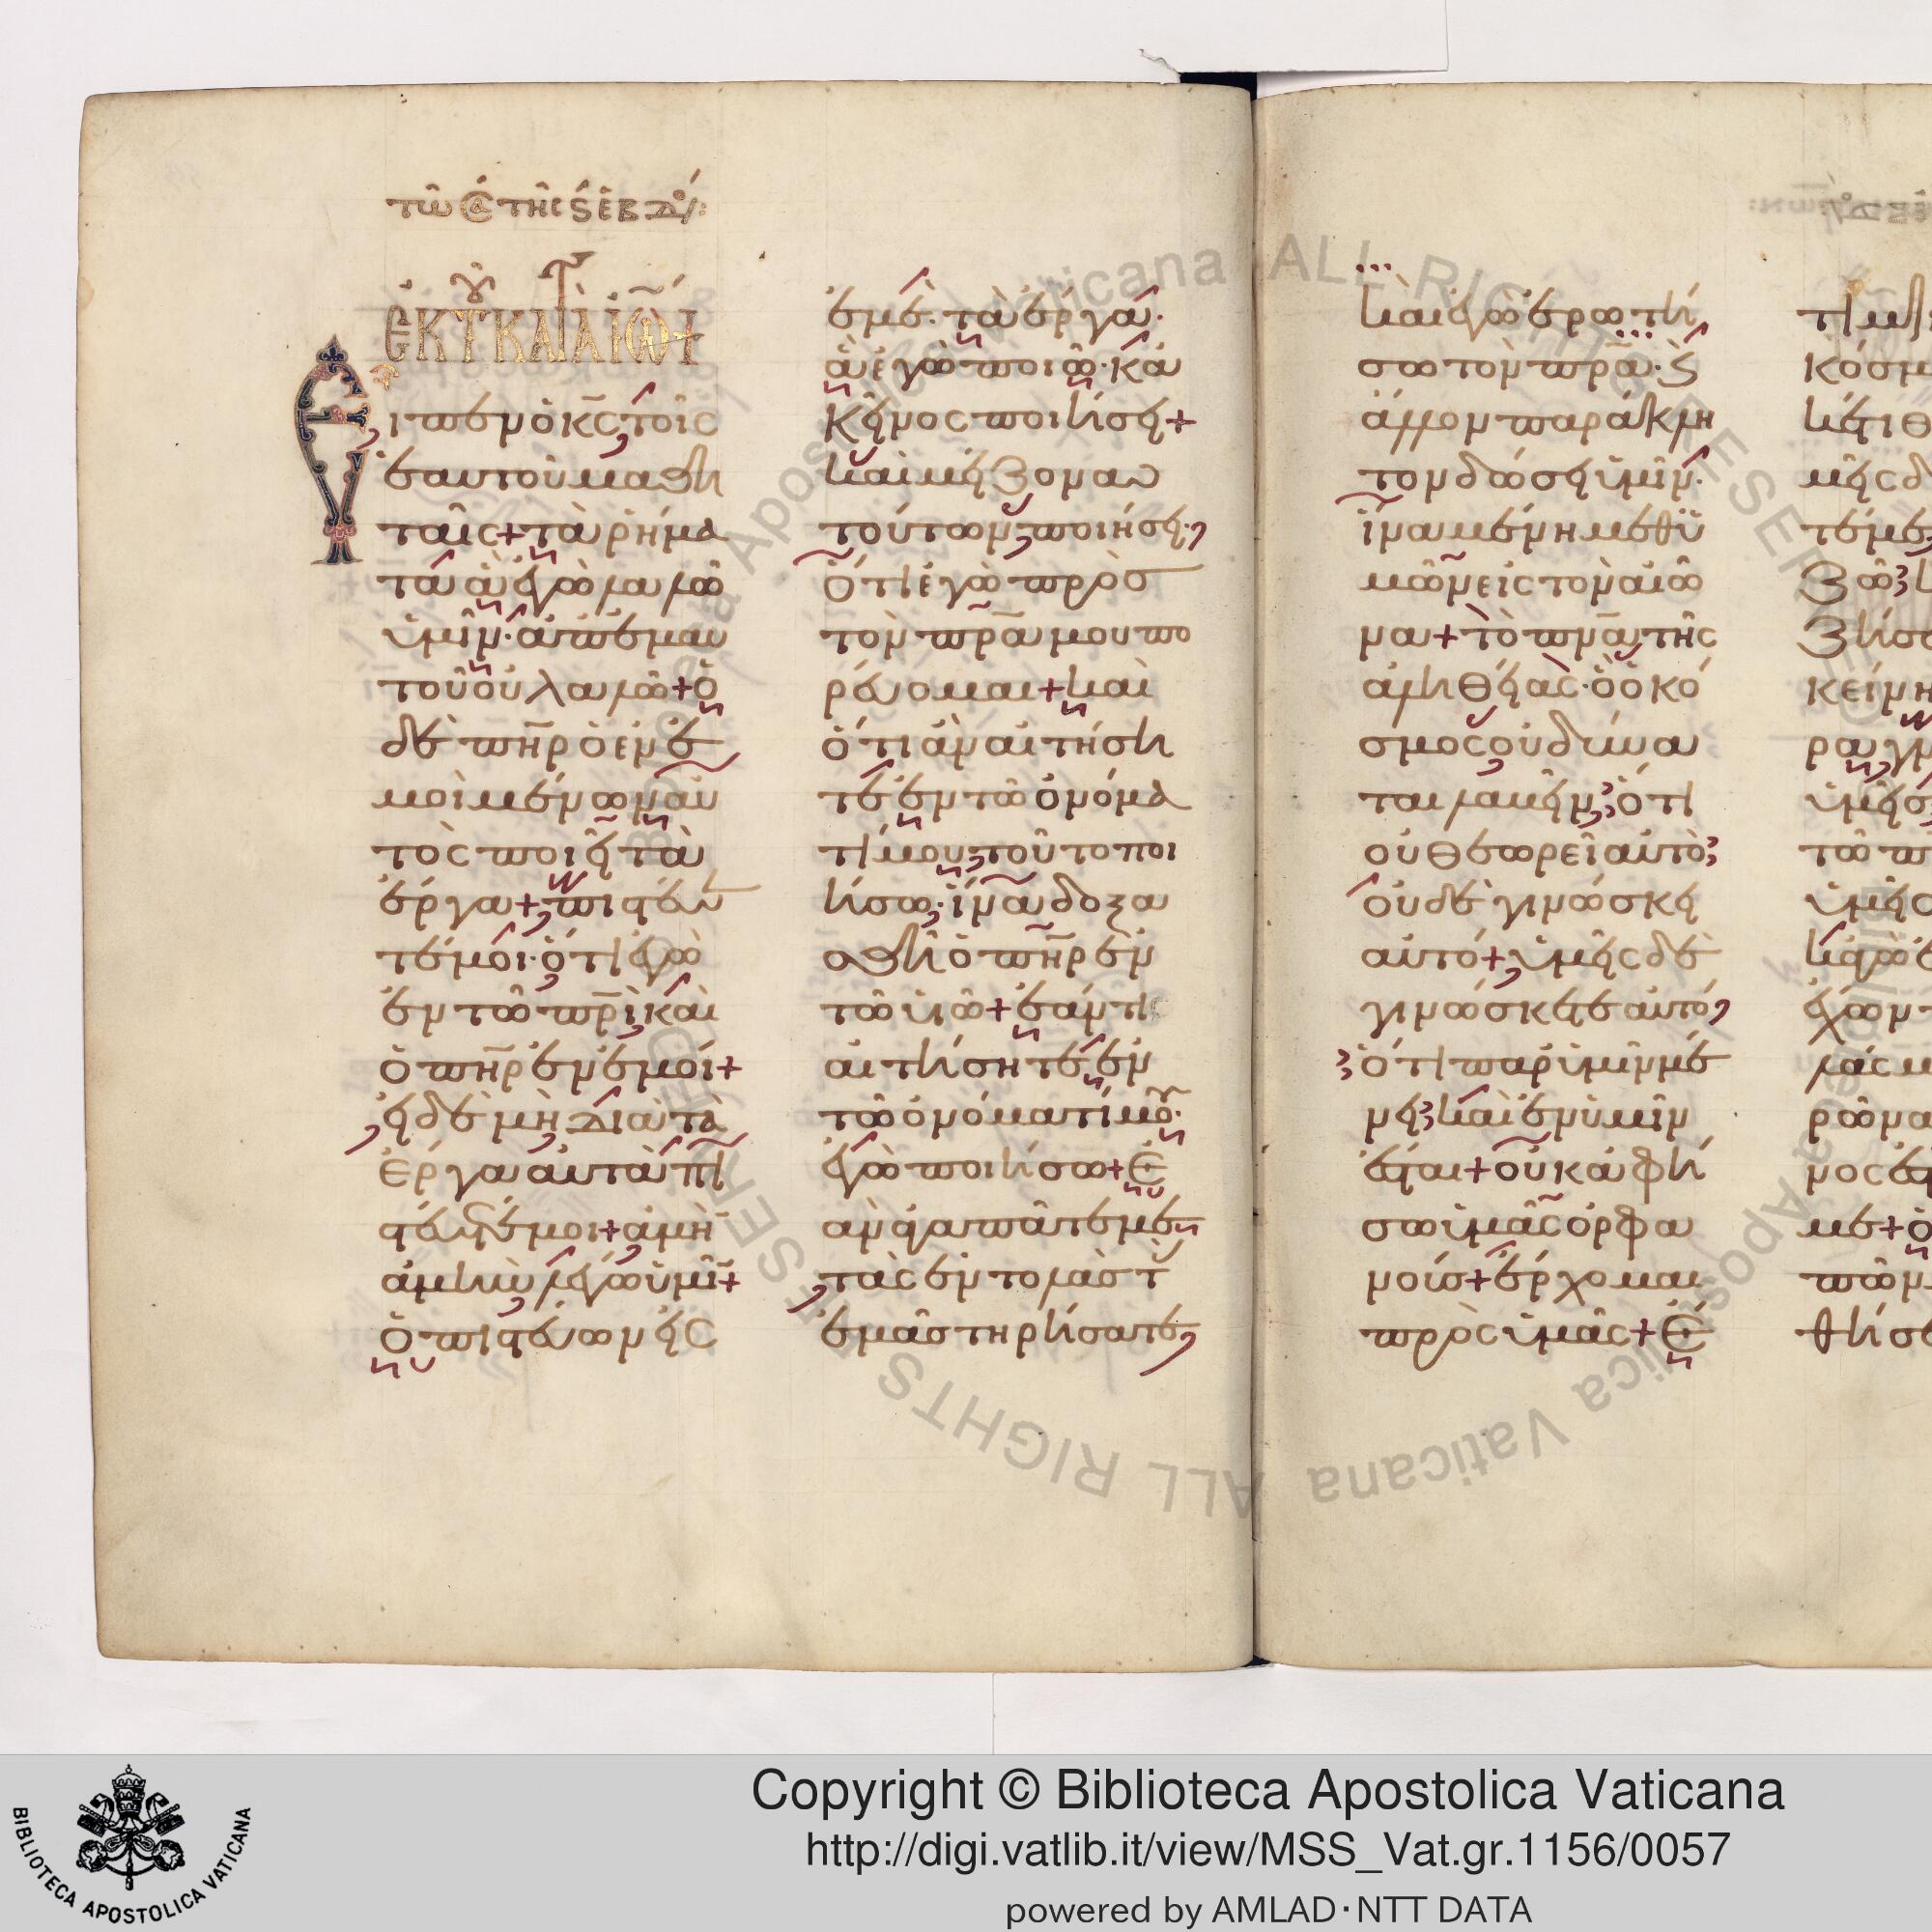 τῶ Σα τῆς ϛ ἑβδο:
ἐκ τοῦ κατὰ ἰω+
Εἶπεν ὁ κς τοῖς
ἑαυτοῦ μαθη
ταῖς+τὰ ῥήμα
τα ἃ ἐγὼ λαλῶ
ὑμῖν· ἀπ' ἐμαυ
τοῦ οὐ λαλῶ+ὁ
δὲ πηρ ὁ ἐν ἐ
μοὶ μένων αὐ
τὸς ποιεῖ τὰ
ἔργα+πιστεύε
τέ μοι· ὅτι ἐγὼ
ἐν τῶ πρι καὶ
ὁ πηρ ἐν ἐμοί+
εἰ δὲ μὴ διὰ τὰ
ἔργα αὐτὰ πι
στεύετέ μοι+ἀμὴ
ἀμὴν λέγω ὑμῖ+
ὁ πιστεύων εἰς
ἐμέ· τὰ ἔργα·
ἃ ἐγὼ ποιῶ· κἀ
κεῖνος ποιήσει+
καὶ μείζονα
τούτων ποιήσει·
ὅτι ἐγὼ πρὸσ
τὸν πρα μου πο
ρεύομαι+καὶ
ὅτι ἂν αἰτήση
τε ἐν τῶ ὀνόμα
τί μου τοῦτο ποι
ήσω· ἵνα δοξα
σθῆ ὁ πηρ ἐν
τῶ υἱῶ+ἐάν τι
αἰτήσητε ἐν
τῶ ὀνόματί μου·
ἐγὼ ποιήσω+ἐ
ὰν ἀγαπᾶτέ με
τὰς ἐντολὰσ τ
ἐμὰσ τηρήσατε
καὶ ἐγὼ ἐρωτή
σω τὸν πρα· ϛ
ἄλλον παράκλη
τον δώσει ὑμῖν·
ἵνα μένη μεθ' ὑ
μῶν εἰς τὸν αἰῶ
να+τὸ πνα τῆς
ἀληθείας· ὃ ὁ κό
σμος οὐ δύνα
ται λαβεῖν ὅτι
οὐ θεωρεῖ αὐτὸ
οὐδὲ γινώσκει
αὐτό+ὑμεῖς δὲ
γινώσκετε αὐτό
ὅτι παρ' ὑμῖν μέ
νει καὶ ἐν ὑμῖν
ἔσται+οὐκ ἀφή
σω ὑμᾶς ὀρφα
νούσ+ἔρχομαι
πρὸς ὑμᾶς+ἔ
κόσμ
Copyright © Biblioteca Apostolica Vaticana
http://digi.vatlib.it/view/MSS_Vat.gr.1156/0057
powered by AMLAD·NTT DATA
BIBLIOTECA APOSTOLICA VATICANA